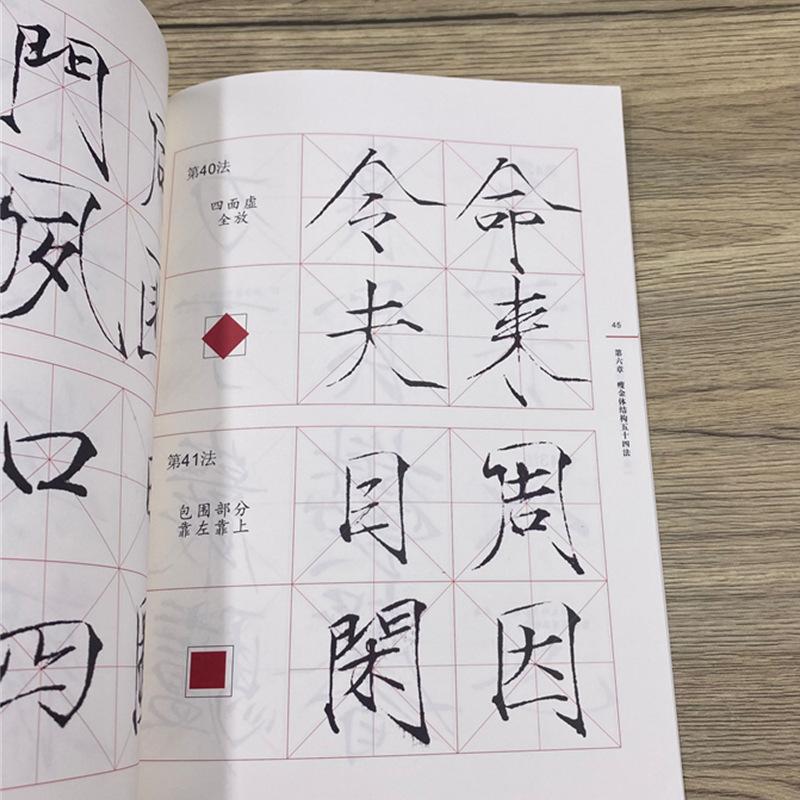 門
夙
口
四
第40法
四面虚
全放
令命
夫来
第41法
包围部分
靠左靠上
目周
閑因
45
第六章 瘦金体结构五十四法